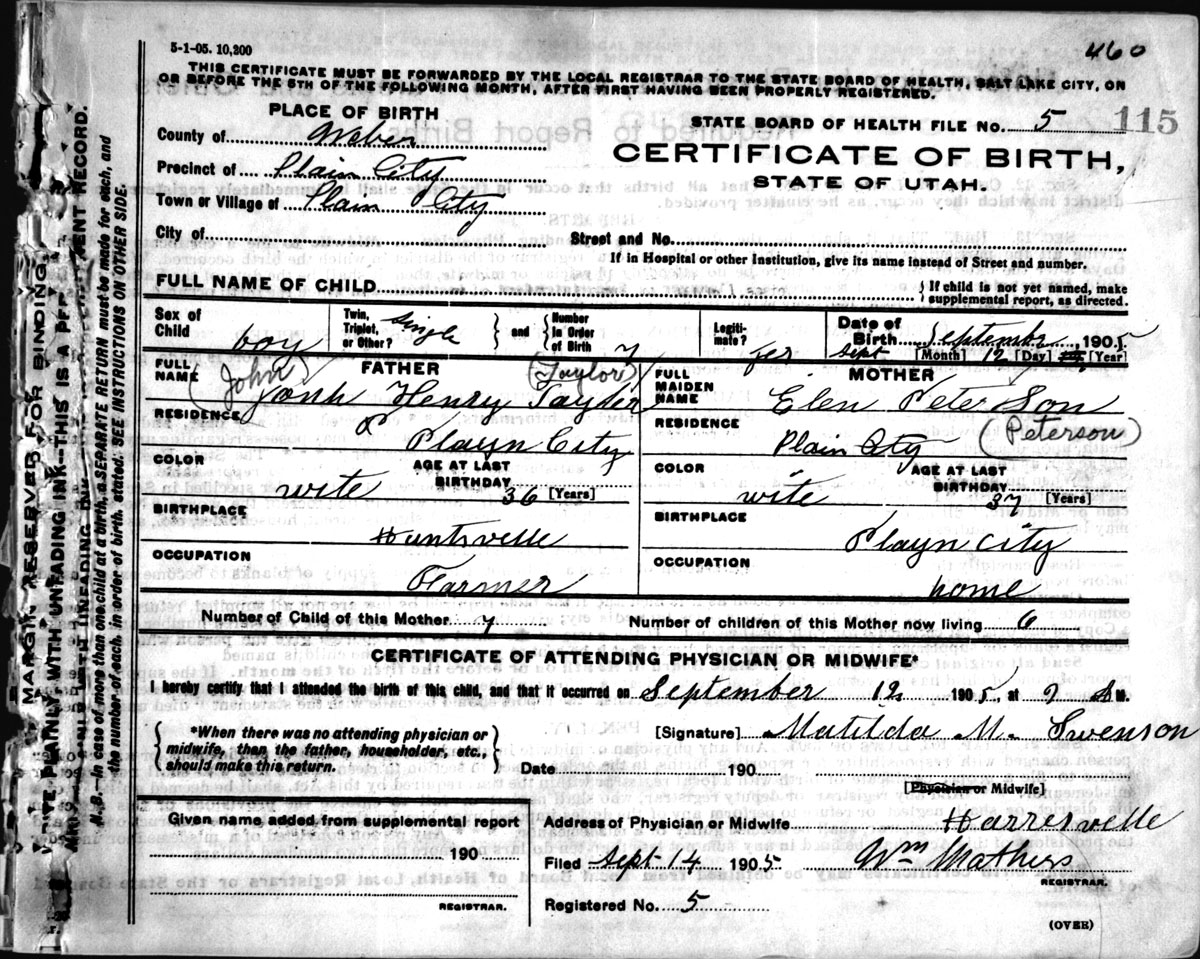 5-1-05. 10,200
460
THIS CERTIFICATE MUST BE FORWARDED BY THE LOCAL REGISTRAR TO THE STATE BOARD OF HEALTH, SALT LAKE CITY, ON
OR BEFORE THE 5TH OF THE FOLLOWING MONTH, AFTER FIRST HAVING BEEN PROPERLY REGISTERED.
PLACE OF BIRTH
STATE BOARD OF HEALTH FILE No. 5 115
County of Weber
CERTIFICATE OF BIRTH,
Precinct of Plain City
STATE OF UTAH.
Town or Village of Plain City
City of Street and No.
If in Hospital or other Institution, give its name instead of Street and number.
FULL NAME OF CHILD { If child is not yet named, make
supplemental report, as directed.
Sex of Child boy Twin, Triplet, or Other? single } and { Number in Order of Birth 7 Legiti-mate? yes Date of Birth September 1905
Sept [Month] 12 [Day] [Year]
FULL NAME FATHER (John) (Taylor)
Jonh Henry Tayler
FULL MAIDEN NAME MOTHER
Elen Peter Son
(Peterson)
RESIDENCE Playn City
RESIDENCE Plain City
COLOR wite AGE AT LAST BIRTHDAY 36 [Years]
COLOR wite AGE AT LAST BIRTHDAY 37 [Years]
BIRTHPLACE Huntsvelle
BIRTHPLACE Playn City
OCCUPATION Farmer
OCCUPATION home
Number of Child of this Mother 7 Number of children of this Mother now living 6
CERTIFICATE OF ATTENDING PHYSICIAN OR MIDWIFE*
I hereby certify that I attended the birth of this child, and that it occurred on September 12 1905, at 9 A M.
{ *When there was no attending physician or
midwife, then the father, householder, etc.,
should make this return. }
[Signature] Matilda M. Swenson
Date 190
[Physician or Midwife]
Given name added from supplemental report
190
REGISTRAR.
Address of Physician or Midwife Harresvelle
Filed Sept 14 1905 Wm Mathers
REGISTRAR.
Registered No. 5
(OVER)
MARGIN RESERVED FOR BINDING.
WRITE PLAINLY WITH UNFADING INK--THIS IS A PERMANENT RECORD.
N.B.—In case of more than one child at a birth, a SEPARATE RETURN must be made for each, and
the number of each, in order of birth, stated. SEE INSTRUCTIONS ON OTHER SIDE.